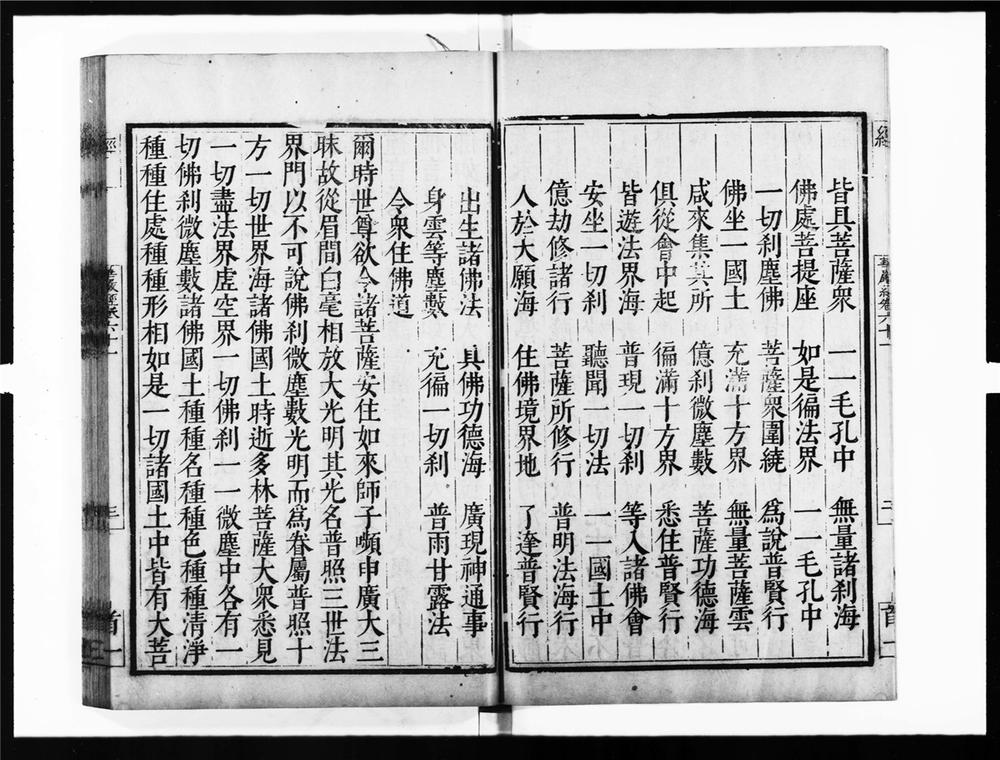 皆具菩薩衆 一一毛孔中 無量諸刹海
佛處菩提座 如是徧法界 一一毛孔中
一切刹塵佛 菩薩衆圍繞 爲說普賢行
佛坐一國土 充滿十方界 無量菩薩雲
咸來集其所 億刹微塵數 菩薩功德海
俱從會中起 徧滿十方界 悉住普賢行
皆遊法界海 普現一切刹 等入諸佛會
安坐一切刹 聽聞一切法 一一國土中
億劫修諸行 菩薩所修行 普明法海行
人於大願海 住佛境界地 了達普賢行
出生諸佛法 具佛功德海 廣現神通事
身雲等塵數 充徧一切刹 普雨甘露法
令衆住佛道
爾時世尊欲令諸菩薩安住如來師子頻申廣大三
昧故從眉間白毫相放大光明其光名普照三世法
界門以不可說佛刹微塵數光明而爲眷屬普照十
方一切世界海諸佛國土時逝多林菩薩大衆悉見
一切盡法界虛空界一切佛刹一一微塵中各有一
切佛刹微塵數諸佛國土種種名種種色種種清淨
種種住處種種形相如是一切諸國土中皆有大菩